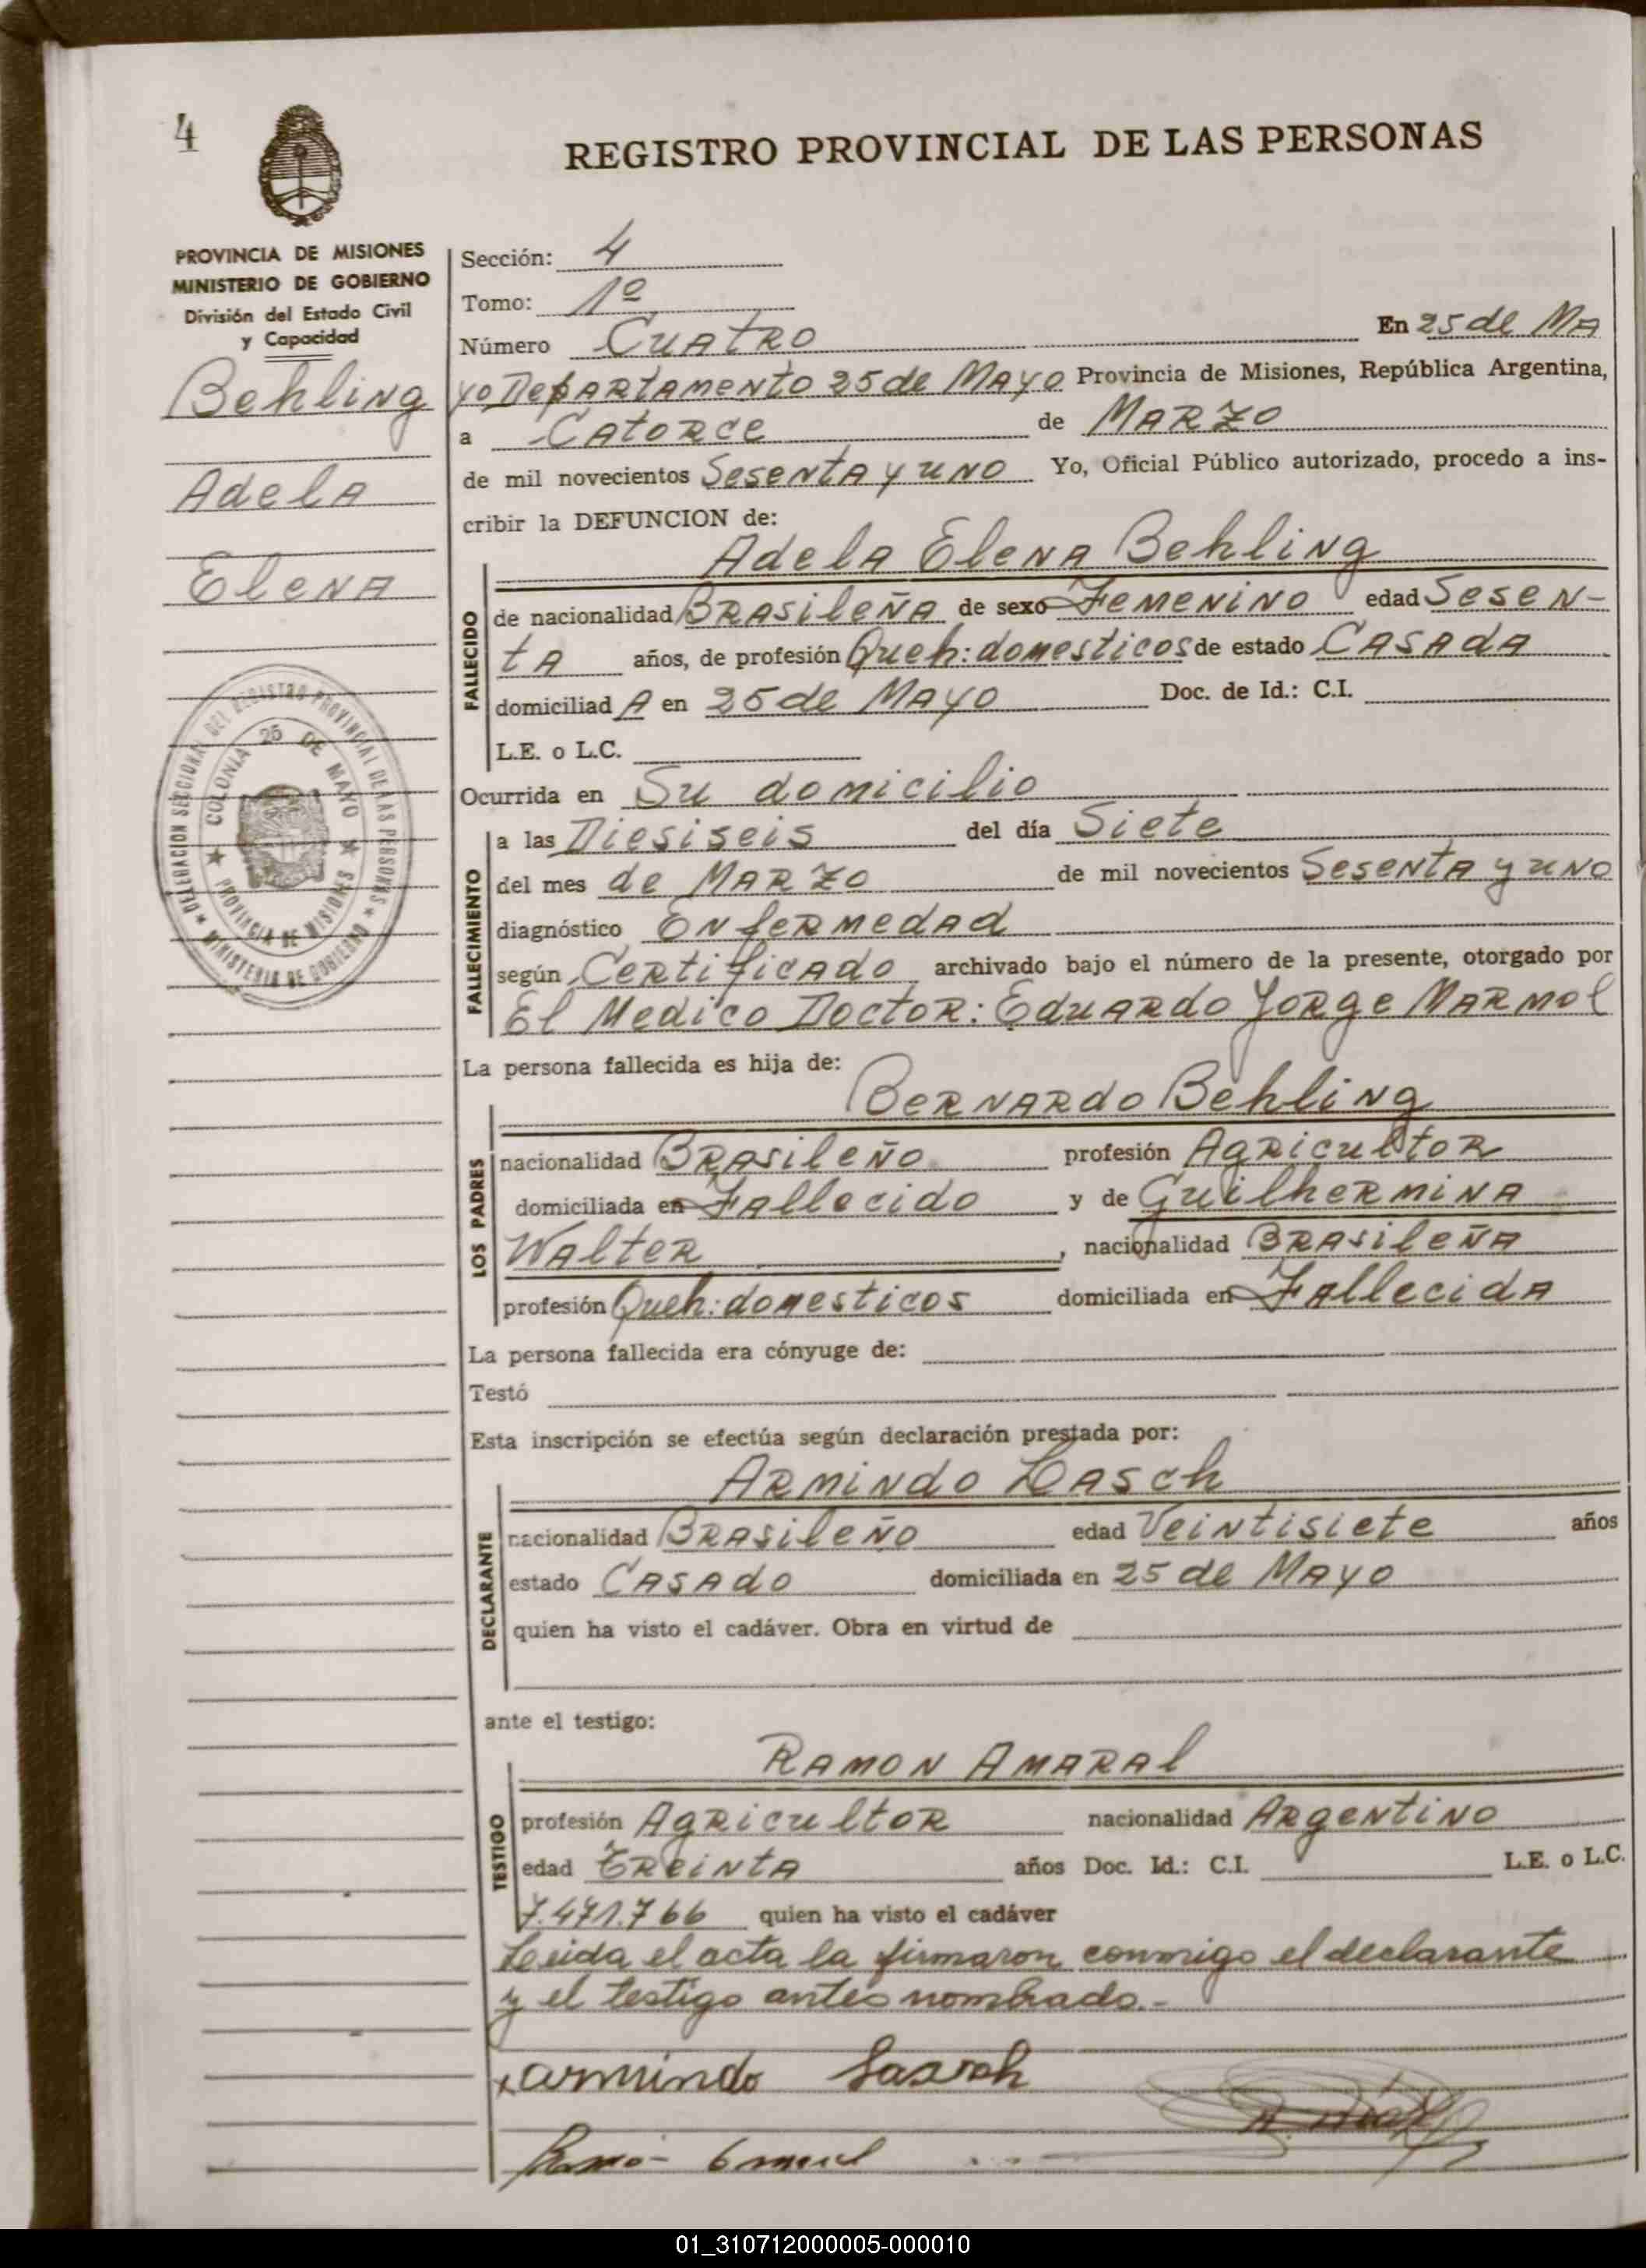 4
REGISTRO PROVINCIAL DE LAS PERSONAS
PROVINCIA DE MISIONES
MINISTERIO DE GOBIERNO
División del Estado Civil
y Capacidad
Behling
Adela
Elena
DELEGACION SECCIONAL DEL REGISTRO PROVINCIAL DE LAS PERSONAS
MINISTERIO DE GOBIERNO
COLONIA 25 DE MAYO
PROVINCIA DE MISIONES
Sección: 4
Tomo: 1º
Número Cuatro En 25 de Ma
yo Departamento 25 de Mayo Provincia de Misiones, República Argentina,
a Catorce de Marzo
de mil novecientos Sesenta y uno Yo, Oficial Público autorizado, procedo a ins-
cribir la DEFUNCION de:
Adela Elena Behling
FALLECIDO
de nacionalidad Brasileña de sexo Femenino edad Sesen-
ta años, de profesión Queh: domesticos de estado Casada
domiciliad A en 25 de Mayo Doc. de Id.: C.I.
L.E. o L.C.
Ocurrida en Su domicilio
FALLECIMIENTO
a las Diesiseis del día Siete
del mes de Marzo de mil novecientos Sesenta y uno
diagnóstico Enfermedad
según Certificado archivado bajo el número de la presente, otorgado por
El Medico Doctor: Eduardo Jorge Marmol
La persona fallecida es hija de:
Bernardo Behling
LOS PADRES
nacionalidad Brasileño profesión Agricultor
domiciliada en Fallecido y de Guilhermina
Walter, nacionalidad Brasileña
profesión Queh: domesticos domiciliada en Fallecida
La persona fallecida era cónyuge de:
Testó
Esta inscripción se efectúa según declaración prestada por:
Armindo Lasch
DECLARANTE
nacionalidad Brasileño edad Veintisiete años
estado Casado domiciliada en 25 de Mayo
quien ha visto el cadáver. Obra en virtud de
ante el testigo:
Ramon Amaral
TESTIGO
profesión Agricultor nacionalidad Argentino
edad Treinta años Doc. Id.: C.I. L.E. o L.C.
7.471.766 quien ha visto el cadáver
Leida el acta la firmaron conmigo el declarante
y el testigo antes nombrado.-
x armindo Lasch
01_310712000005-000010